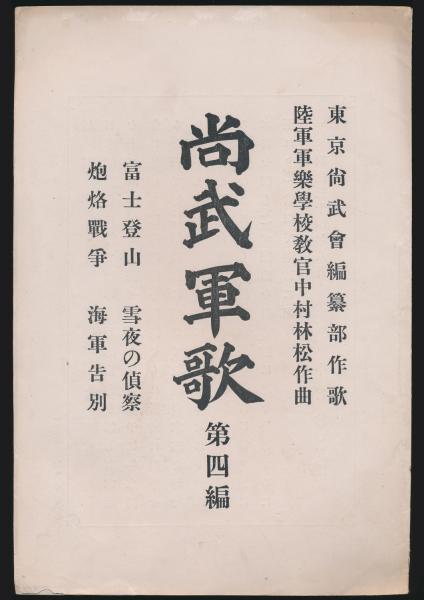 東京尙武會編纂部作歌
陸軍軍樂學校敎官中村林松作曲
尚武軍歌 第四編
富士登山 雪夜の偵察
炮烙戰爭 海軍告別